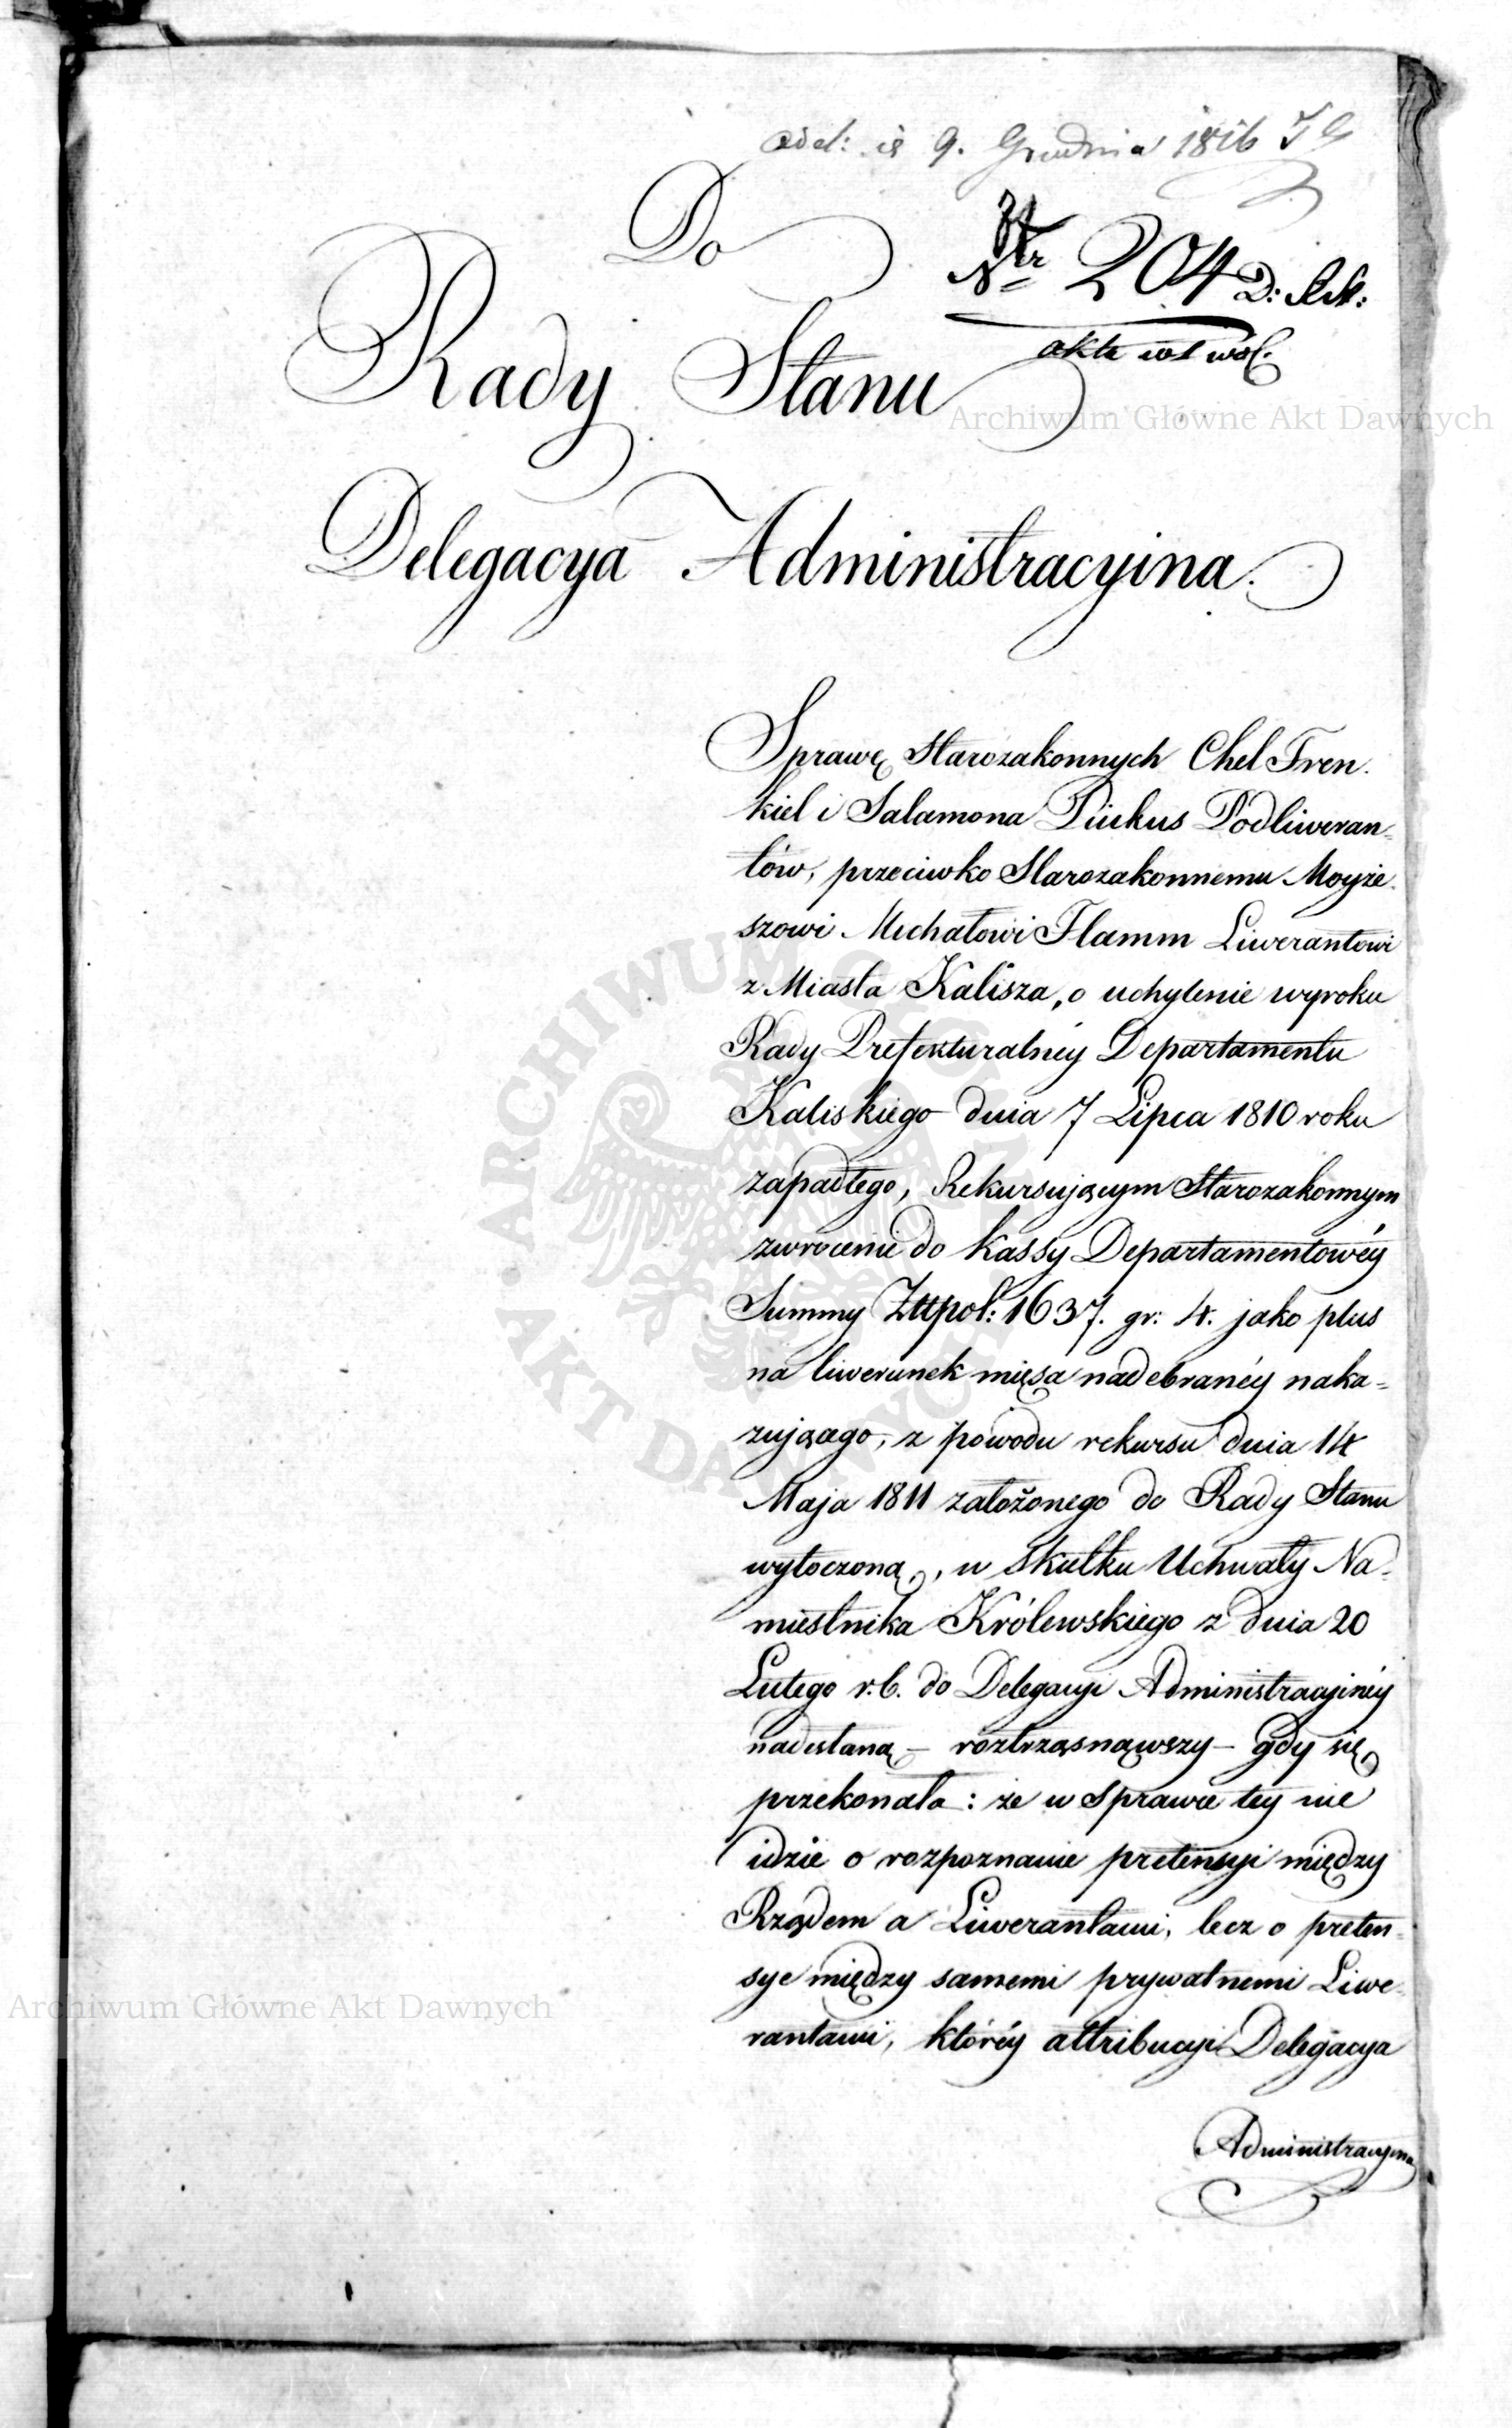 odd: d 9. Grudnia 1816
Do
Nr 204 D: Adm:
akta
Rady Stanu
Archiwum Główne Akt Dawnych
Delegacya Administracyina.
Sprawę Starozakonnych Chel Fren-
kiel i Salamona Pinkus Podliweran=
tów, przeciwko Starozakonnemu Moyże-
szowi Michałowi Flamm Liwerantowi
z Miasta Kalisza, o uchylenie wyroku
Rady Prefekturalnéy Departamentu
Kaliskiego dnia 7 Lipca 1810 roku
zapadłego, Rekursującym Starozakonnym
zwrócenie do Kassy Departamentowéy
Summy Złłpol: 1637. gr: 4. jako plus
na liwerunek mięsa nadebranéy naka=
zującego, z powodu rekursu dnia 14
Maja 1811 założonego do Rady Stanu
wytoczoną, w skutku Uchwały Na-
miestnika Królewskiego z dnia 20
Lutego r.b. do Delegacyi Administracyinéy
nadesłaną – roztrząsnąwszy – gdy się
przekonała: że w sprawie tey nie
idzie o rozpoznanie pretensyi między
Rządem a Liwerantami, lecz o preten-
sye między samemi prywatnemi Liwe-
rantami, któréy attribucyi Delegacya
Administracyina
ARCHIWUM GŁÓWNE AKT DAWNYCH
Archiwum Główne Akt Dawnych